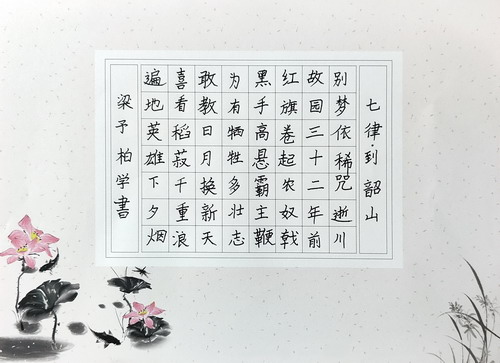 七律·到韶山
别梦依稀咒逝川
故园三十二年前
红旗卷起农奴戟
黑手高悬霸主鞭
为有牺牲多壮志
敢教日月换新天
喜看稻菽千重浪
遍地英雄下夕烟
梁予柏学書